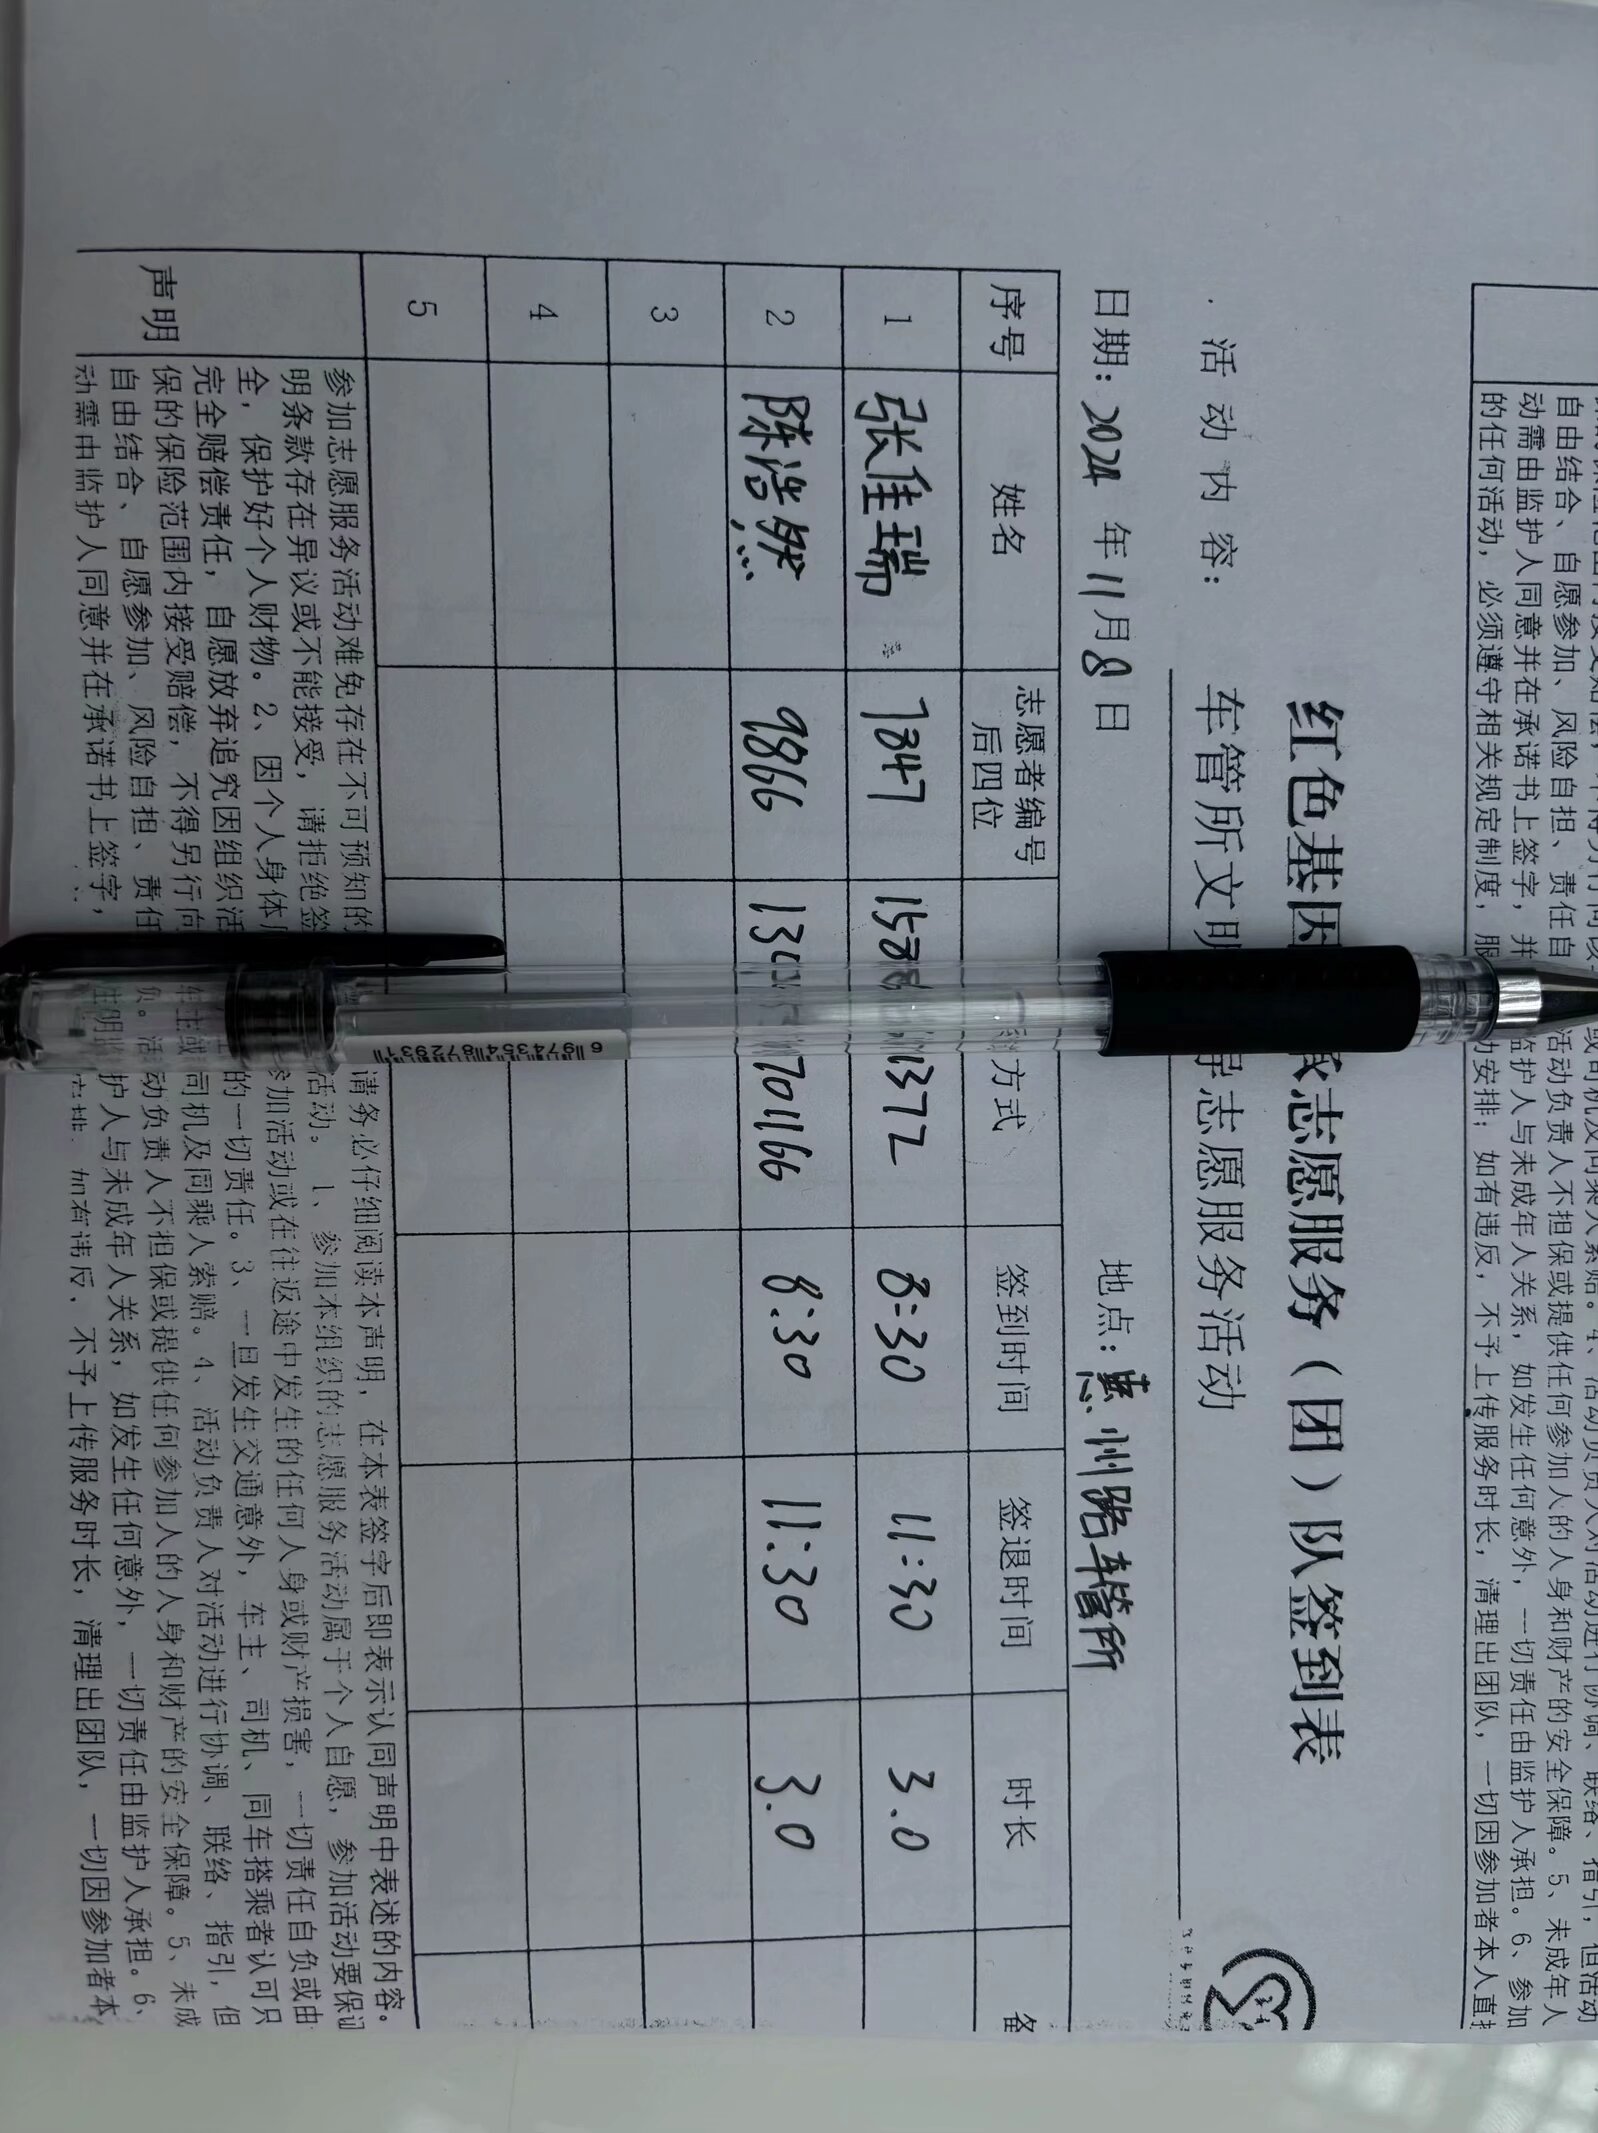 自由结合、自愿参加、风险自担、责任自
动需由监护人同意并在承诺书上签字，并
监护人与未成年人关系，如发生任何意外，一切责任由监护人承担。6、参加
的任何活动，必须遵守相关规定制度，服
动安排；如有违反，不予上传服务时长，清理出团队，一切因参加者本人直接
红色基因
志愿服务（团）队签到表
活动内容：
车管所文明
志愿服务活动
日期：2024年11月8日
地点：惠州路车管所
序号 姓名 志愿者编号后四位 方式 签到时间 签退时间 时长 备
1 张佳瑞 7847 1372 8:30 11:30 3.0
2 陈浩然 9866 701166 8:30 11:30 3.0
3
4
5
声明
参加志愿服务活动难免存在不可预知的
请务必仔细阅读本声明，在本表签字后即表示认同声明中表述的内容。
明条款存在异议或不能接受，请拒绝签
活动。1、参加本组织的志愿服务活动属于个人自愿，参加活动要保证
全，保护好个人财物。2、因个人身体
参加活动或在往返途中发生的任何人身或财产损害，一切责任自负或由
完全赔偿责任，自愿放弃追究因组织活
的一切责任。3、一旦发生交通意外，车主、司机、同车搭乘者认可只
保的保险范围内接受赔偿，不得另行向
车主或司机及同乘人索赔。4、活动负责人对活动进行协调、联络、指引，但
自由结合、自愿参加、风险自担、责任
负。活动负责人不担保或提供任何参加人的人身和财产的安全保障。5、未成
动需由监护人同意并在承诺书上签字，
护人与未成年人关系，如发生任何意外，一切责任由监护人承担。6、
如有违反，不予上传服务时长，清理出团队，一切因参加者本
6 974354 872931